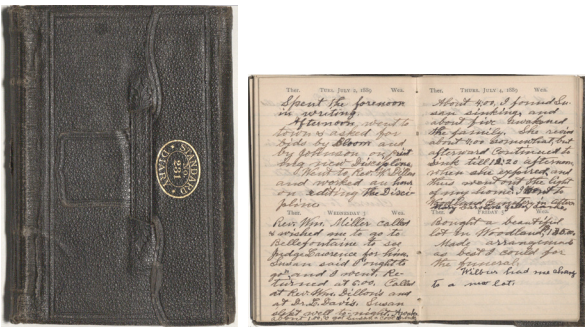 STANDARD
No.
231
DIARY
Ther. TUES. JULY 2, 1889 Wea.
Spent the forenoon
in writing.
Afternoon, went to
town & asked for
bids by Bloom and
by Johnson on print
ing new Discipline.
Went to Rev. W. Dillons
and worked an hour
on editing the Disci-
pline
Ther. WEDNESDAY 3 Wea.
Rev. Wm. Miller called
& wished me to go to
Bellefontaine to see
Judge Lawrence for him,
Susan said I ought to
go and I went. Re-
turned at 6:00. Called
at Rev. Wm. Dillon's and
at Dr. L. Davis. Susan
slept well to night
Ther. THURS. JULY 4, 1889 Wea.
About 4:00, I found Su-
san sinking, and
about five awakened
the family. She
about 7:00 somewhat, but
afterward continued to
sink till 12:20 afternoon
when she expired, and
thus went out the light
of my home.
Woodland Cemetery
Ther. FRIDAY 5 Wea.
Bought a beautiful
lot in Woodland,
Made arrangements
as best I could for
the funeral.
Wilbur had me change
to a new lot.